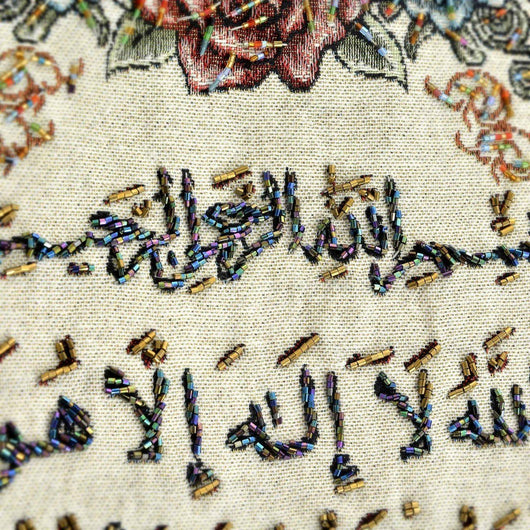 بسم الله الرحمن الرحيم
الله لَا إِلَهَ إِلَّا هُو